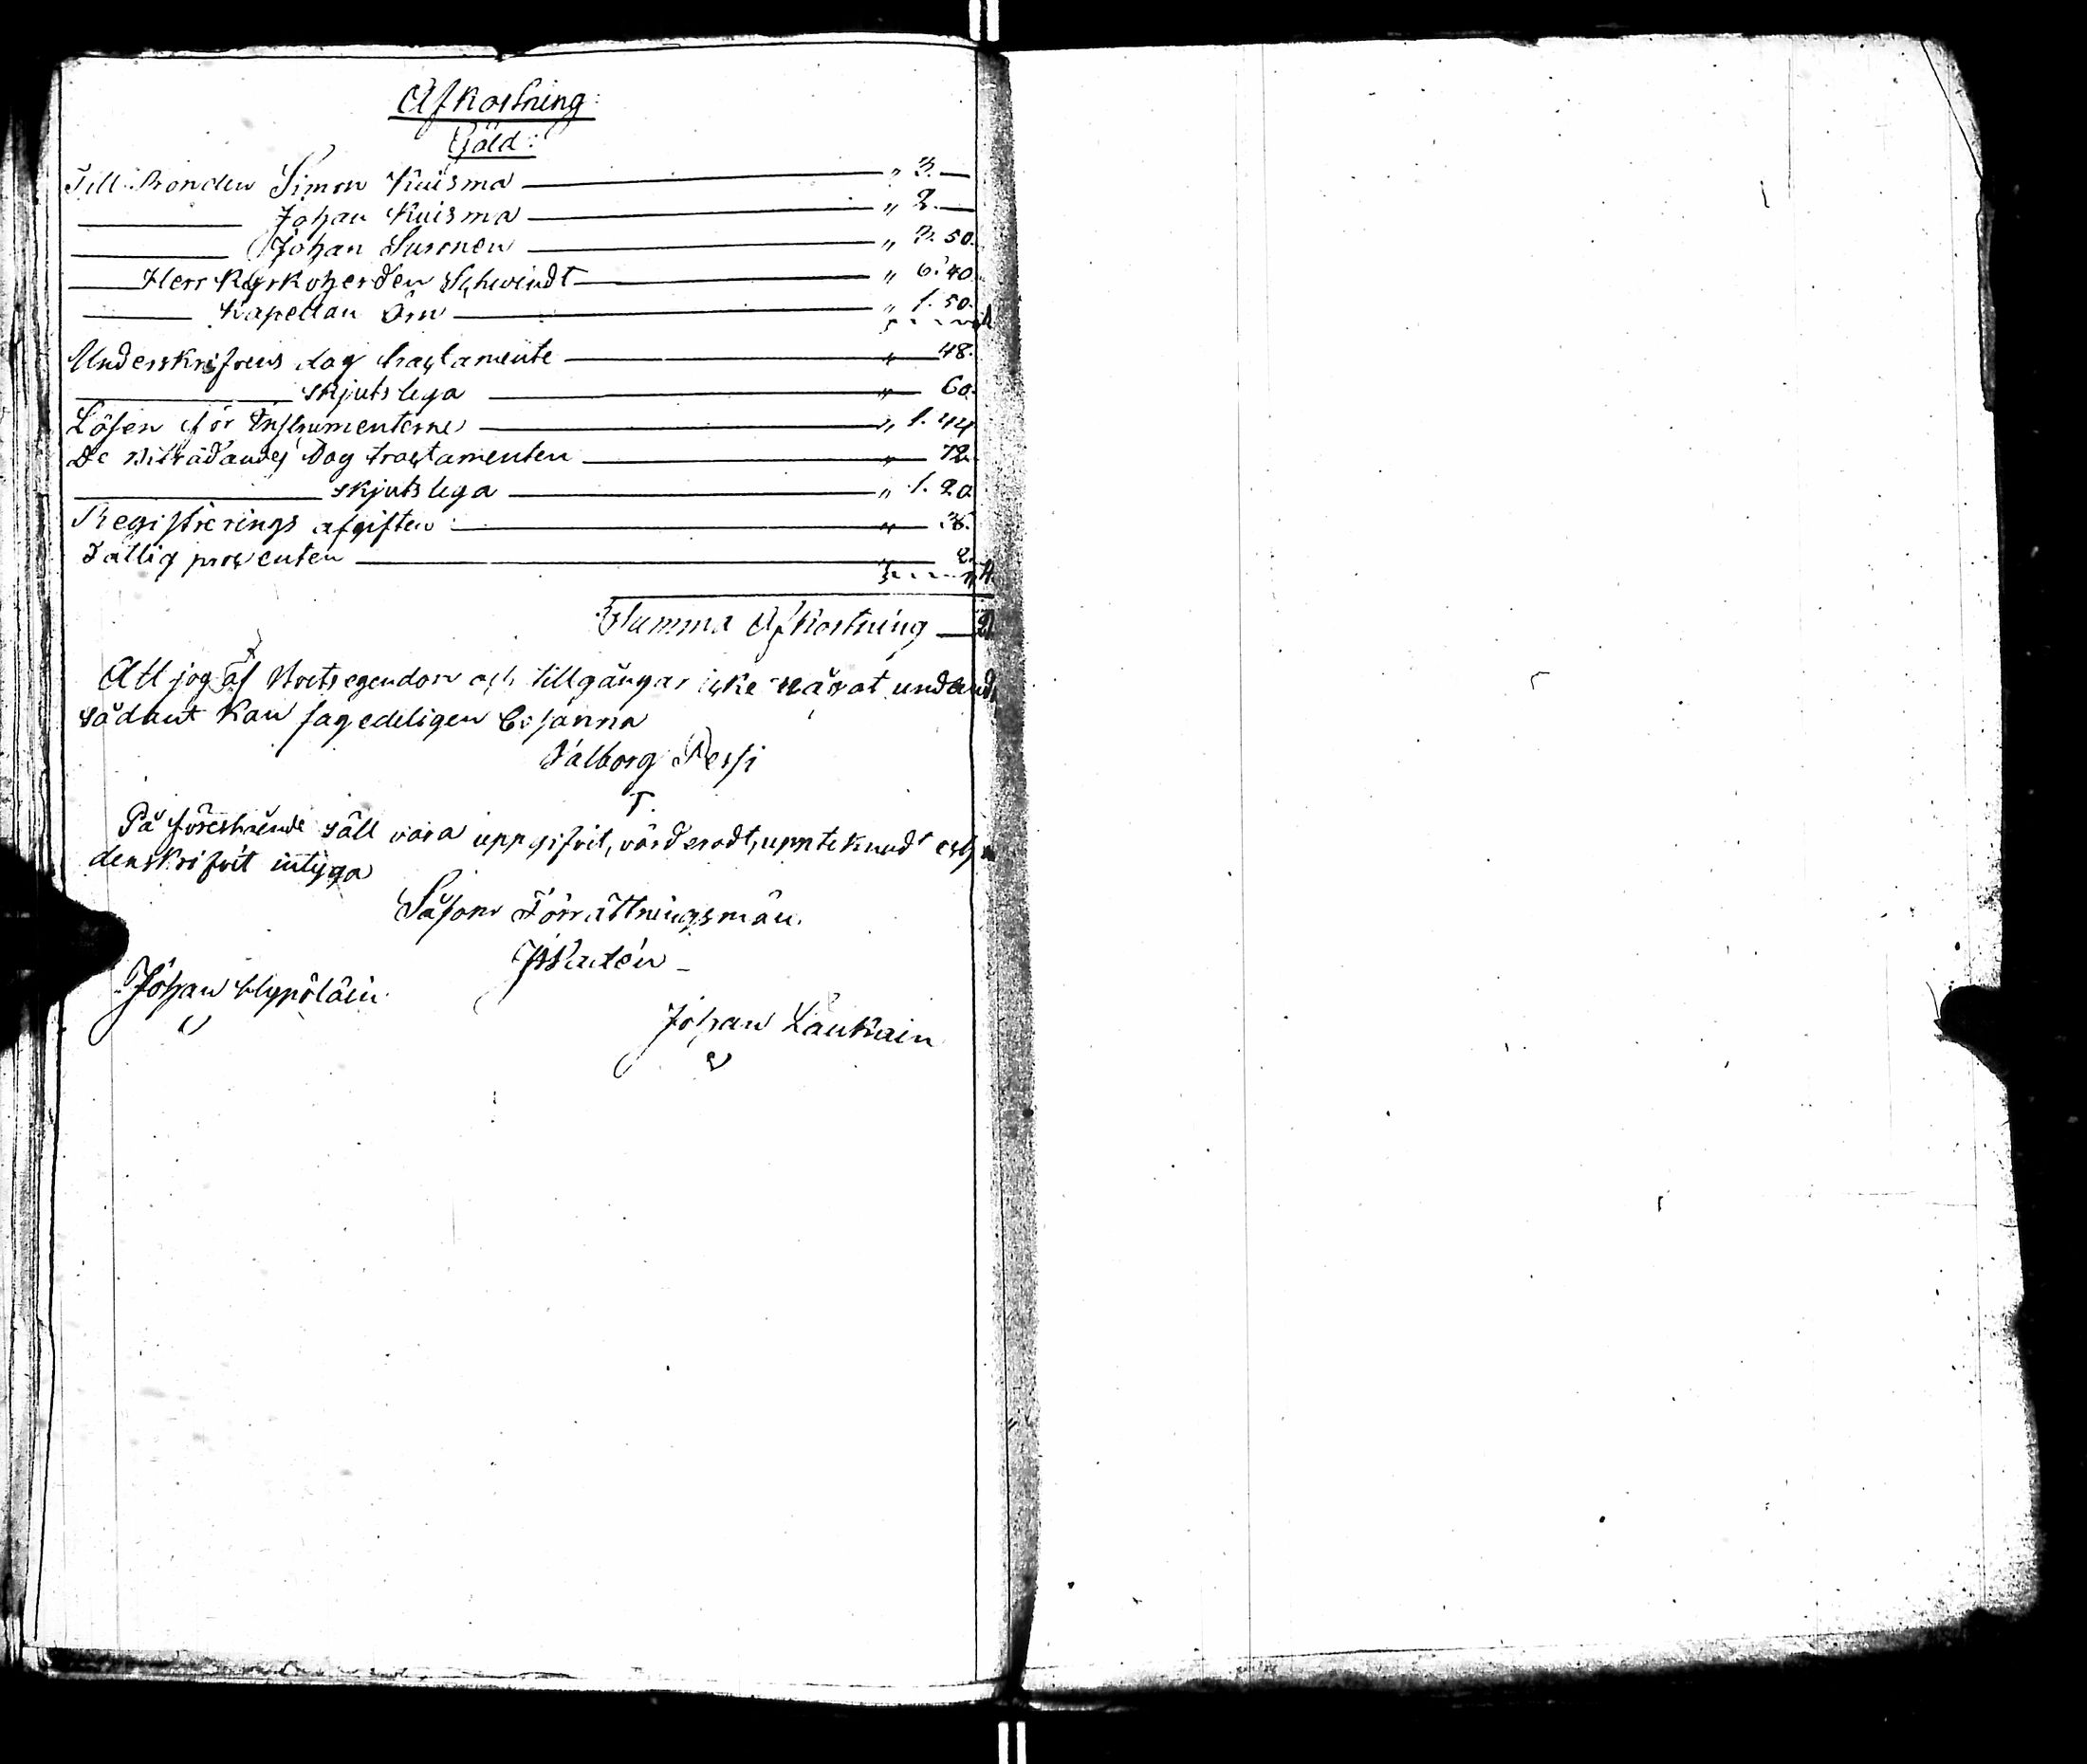 Afkortning:
Gäld:
Till Bonden Simon Kuisma — " 3. —
— Johan Kuisma — " 2. —
— Johan Suronen — " 3. 50.
— Herr Kyrkoherden Schwindt — " 6. 40.
— Kapellan Örn — " 1. 50.
Underskrifvens dag tractamente — " — 48.
— skjutslega — " — 60.
Lösen för Instrumenterne — " 1. 44
De Biträdandes Dag tractamenten — " — 72.
— skjutslega — " 1. 20.
Registrerings afgiften — " — 36.
Fattig procenten — 2.
Summa Afkortning — 21
Att jag af Boets egendom och tillgångar icke något undand
sådant kan jag edeligen besanna
Valborg Pessi
På förestående sätt vara uppgifvit, värderadt, upptecknadt och
denskrifvit intyga
Såsom Förrättningsmän.
Johan Hypöläin
Johan Laukain